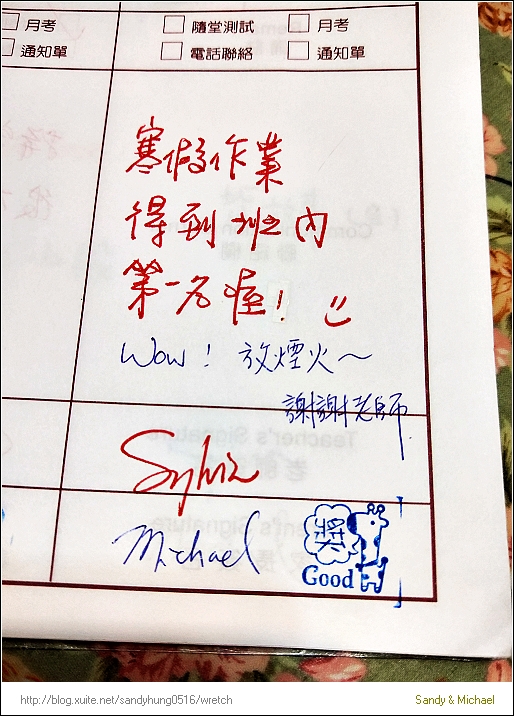 月考
隨堂測試
月考
通知單
電話聯絡
通知單
寒假作業
得到班內
第一名喔!
Wow! 放煙火~
謝謝老師
Sylvia
Michael
Good
http://blog.xuite.net/sandyhung0516/wretch
Sandy & Michael